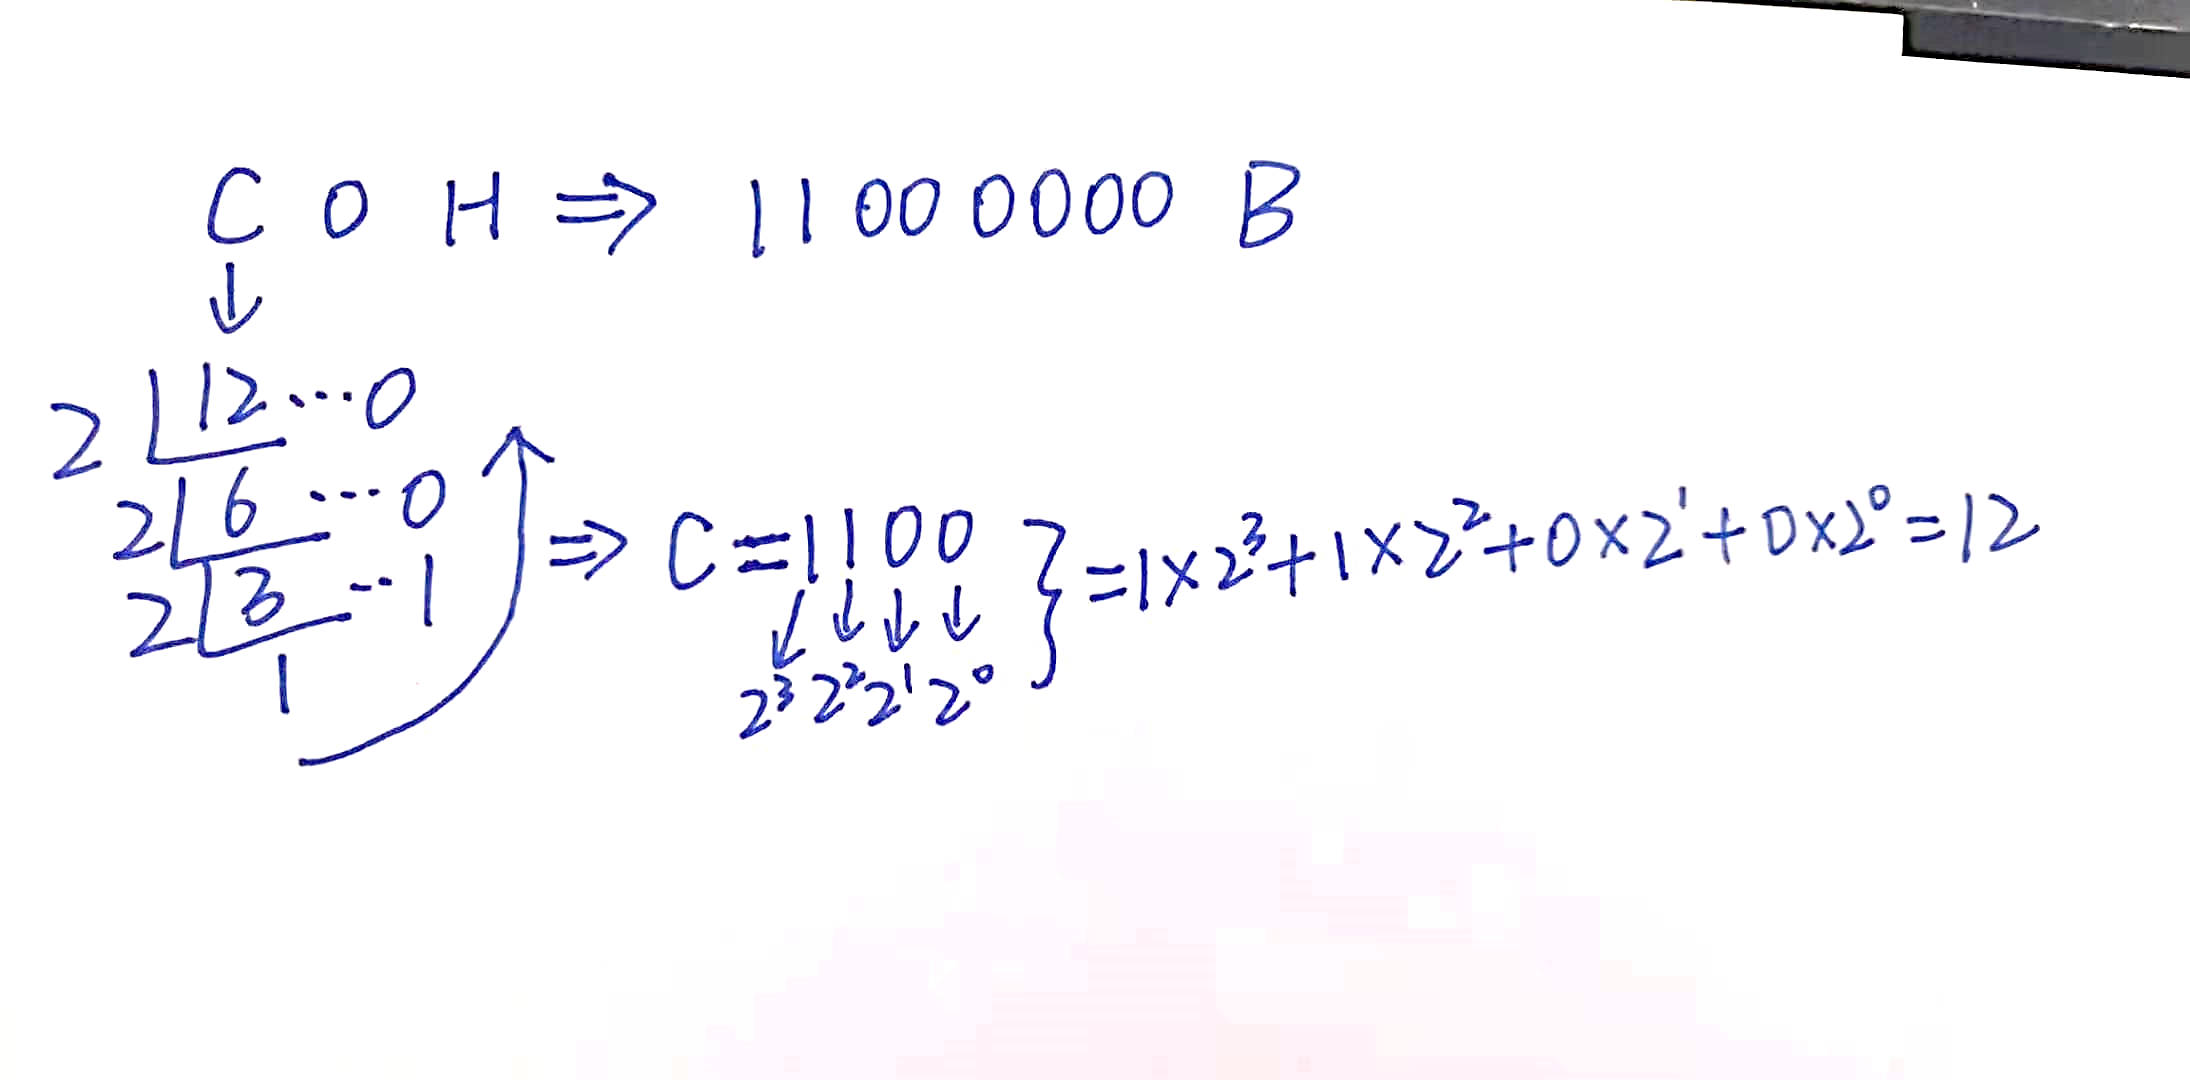 C 0 H ⇒ 1100 0000 B
↓
2 12 ... 0
2 6 ... 0
2 3 ... 1
1
⇒ C = 1100 } = 1×2³+1×2²+0×2¹+0×2⁰=12
↓ ↓ ↓ ↓
2³ 2² 2¹ 2⁰